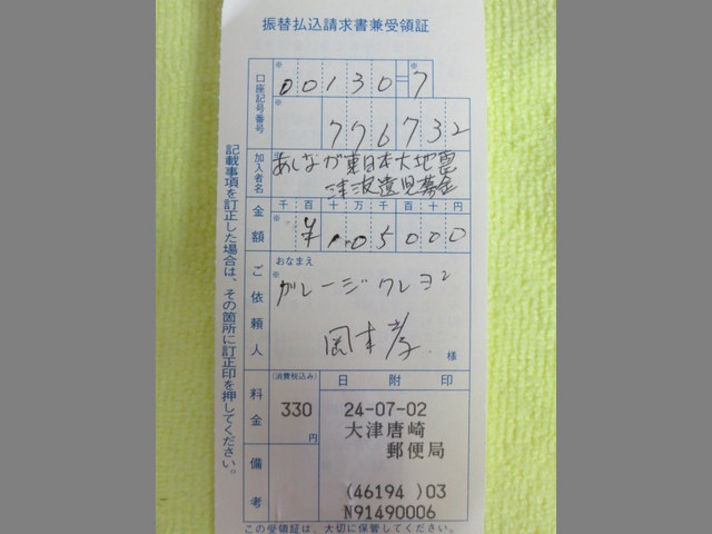 振替払込請求書兼受領証
口座記号番号
※ 00130=※7
※ 776732
加入者名
※あしなが東日本大地震
津波遺児募金
金額
千百十万千百十円
※ ¥105000
ご依頼人
おなまえ
※
ガレージクレヨン
岡本孝 様
料金
(消費税込み)
330
円
日附印
24-07-02
大津唐崎
郵便局
(46194 )03
N91490006
備考
この受領証は、大切に保管してください。
記載事項を訂正した場合は、その箇所に訂正印を押してください。